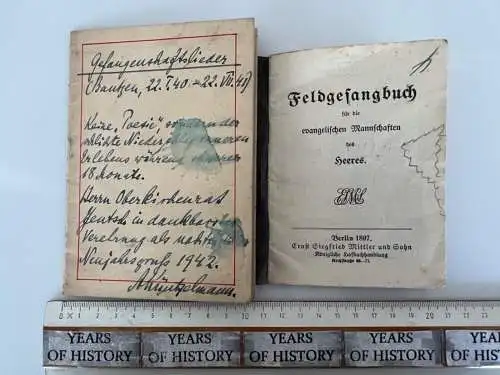 Gefangenschaftslieder
(Bautzen, 22.I.40 – 22.VII.41)
Keine „Poesie“, sondern
schlichte inneren
Erlebens während
18 Monate.
Herrn Oberkirchenrat
in dankbarster
Verehrung als
Neujahrsgruß 1942
Feldgesangbuch
für die
evangelischen Mannschaften
des
Heeres.
Berlin 1897.
Ernst Siegfried Mittler und Sohn
Königliche Hofbuchhandlung
Kochstraße 68–71.
YEARS OF HISTORY
YEARS OF HISTORY
YEARS OF HISTORY
YEARS OF HISTORY